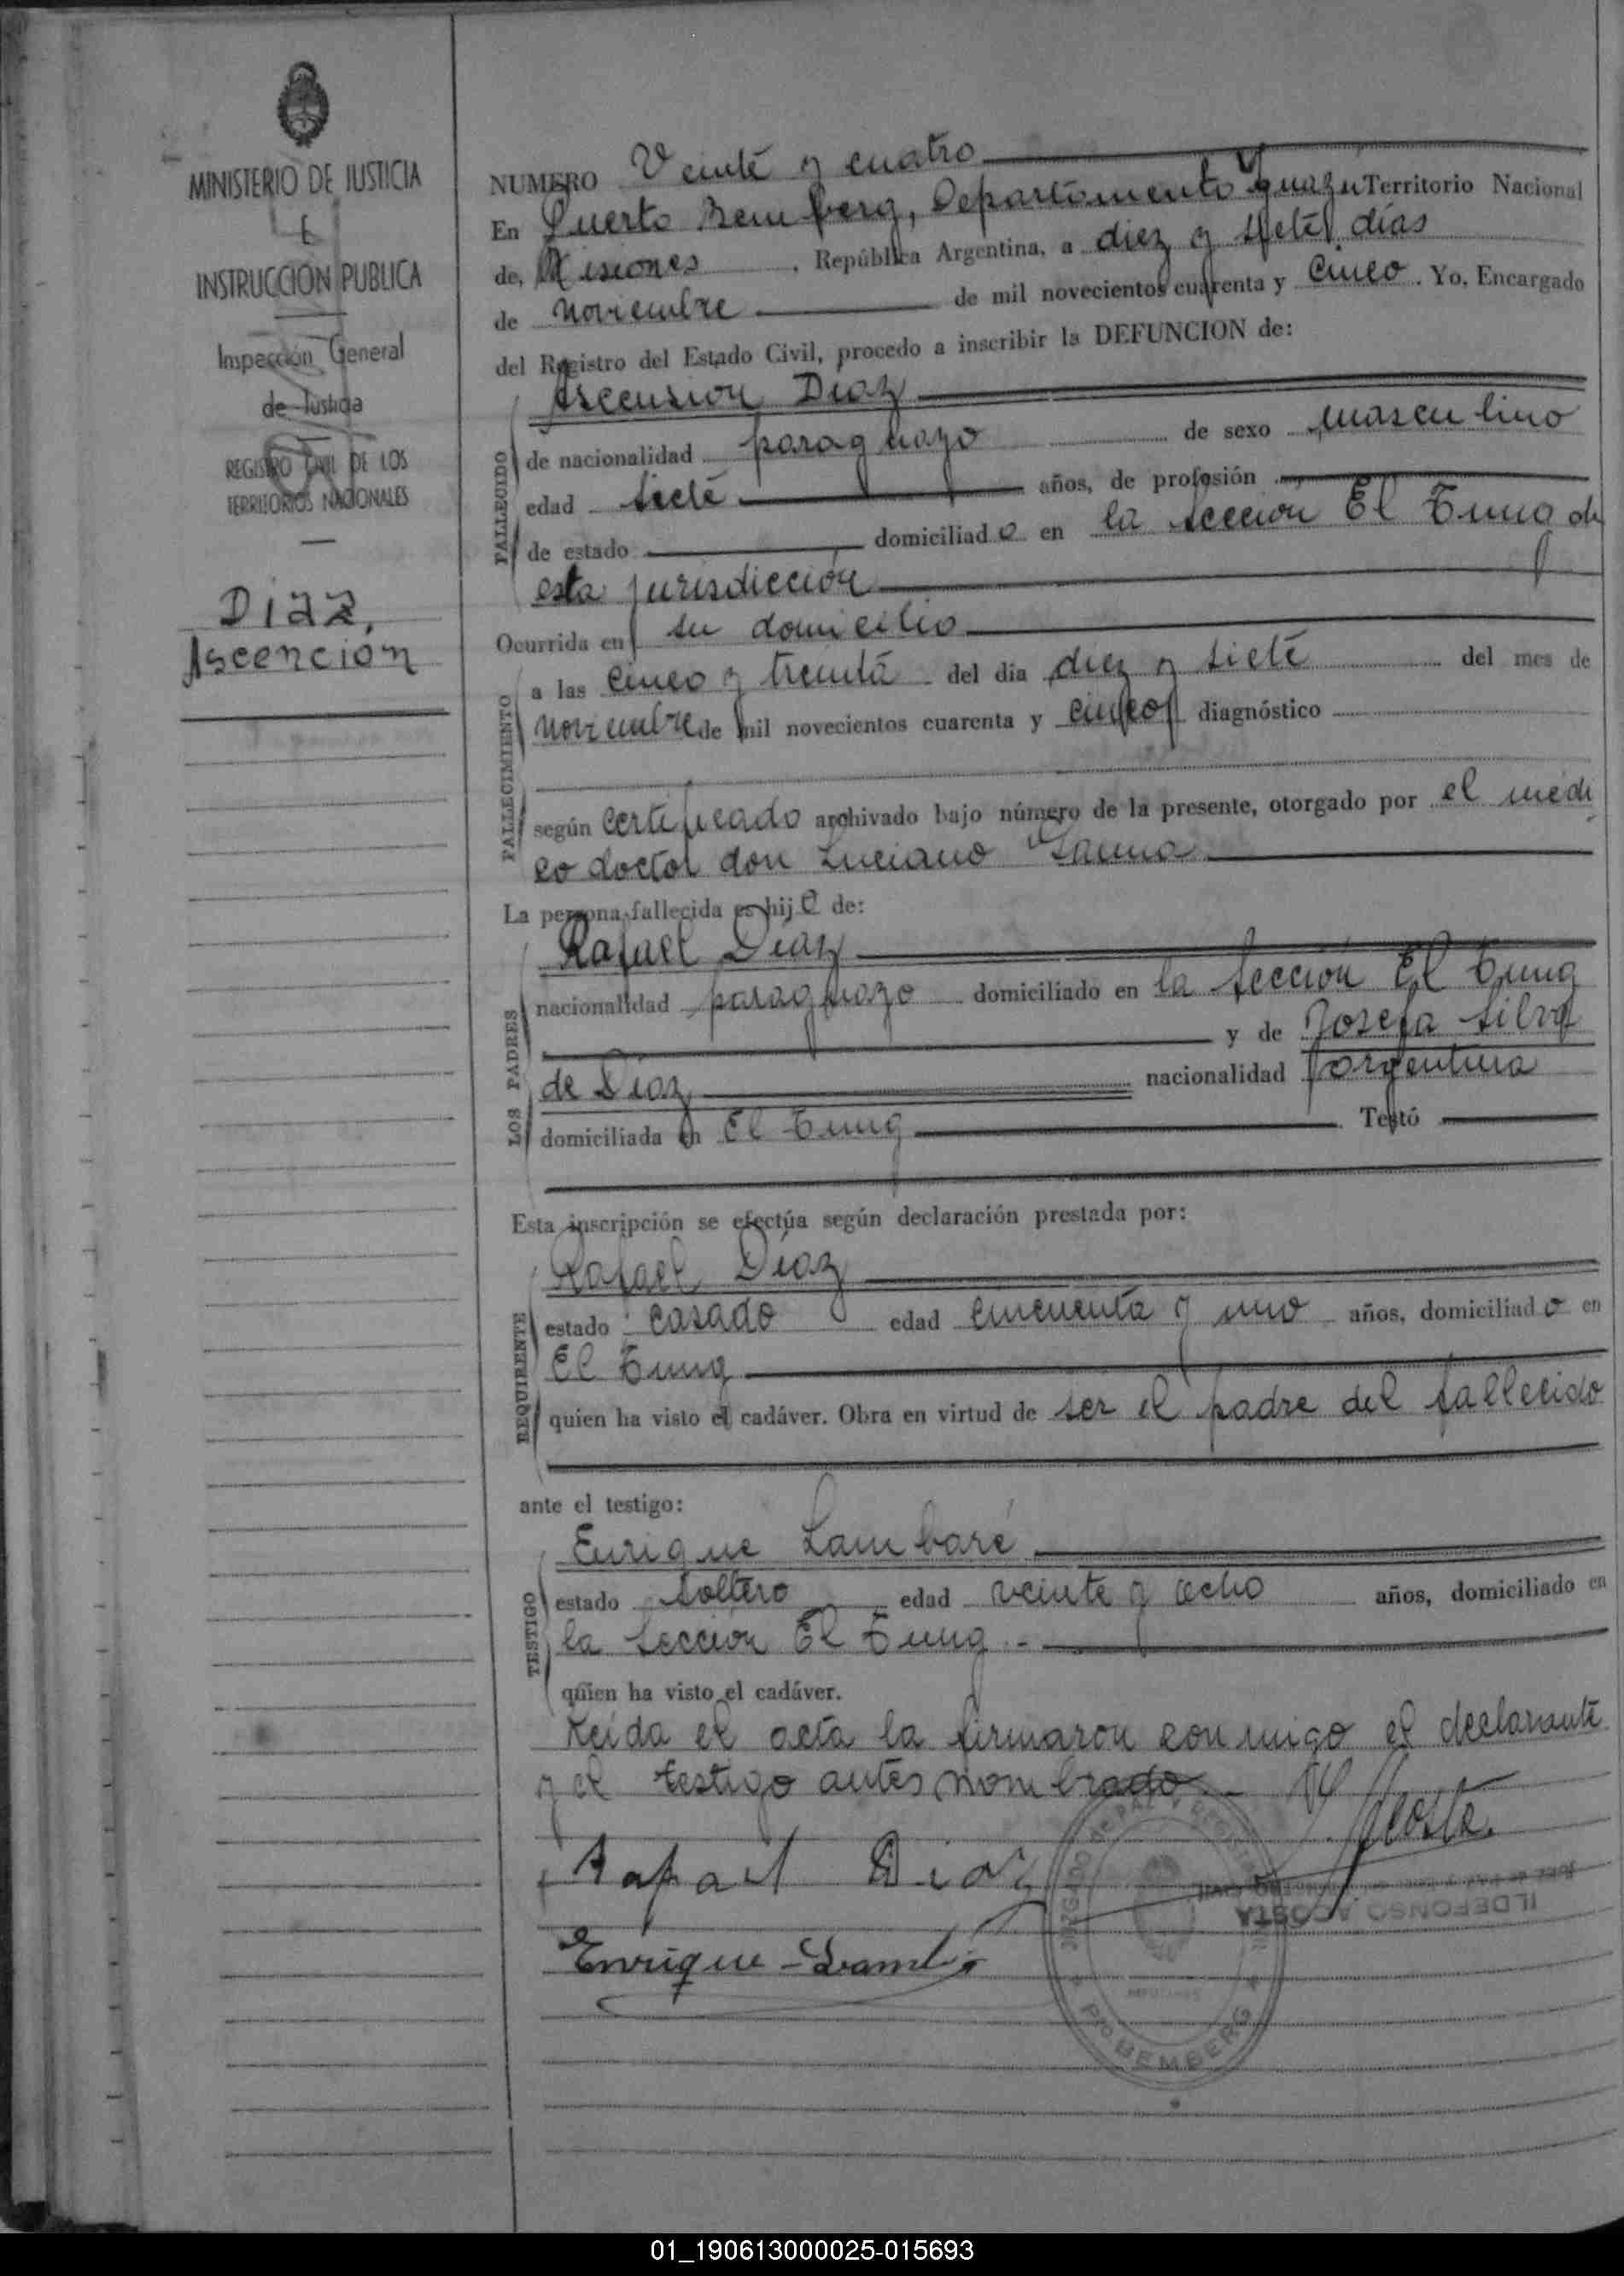 MINISTERIO DE JUSTICIA
E
INSTRUCCIÓN PUBLICA
Inspección General
de Justicia
REGISTRO CIVIL DE LOS
TERRITORIOS NACIONALES
Díaz,
Ascención
NUMERO Veinte y cuatro
En Puerto Bemberg, Departamento Yguazu Territorio Nacional
de, Misiones, República Argentina, a diez y siete días
de noviembre de mil novecientos cuarenta y cinco. Yo, Encargado
del Registro del Estado Civil, procedo a inscribir la DEFUNCION de:
FALLECIDO
Ascension Diaz
de nacionalidad paraguayo de sexo masculino
edad siete años, de profesión
de estado domiciliado en la seccion El Tung de
esta jurisdicción
Ocurrida en su domicilio
FALLECIMIENTO
a las cinco y treinta del dia diez y siete del mes de
noviembre de mil novecientos cuarenta y cinco diagnóstico
según certificado archivado bajo número de la presente, otorgado por el médi
co doctor don Luciano
La persona fallecida es hijo de:
LOS PADRES
Rafael Diaz
nacionalidad paraguayo domiciliado en la seccion El Tung
y de Josefa Silva
de Diaz nacionalidad argentina
domiciliada en El Tung. Testó
Esta inscripción se efectúa según declaración prestada por:
REQUIRENTE
Rafael Diaz
estado casado edad cincuenta y uno años, domiciliado en
El Tung
quien ha visto el cadáver. Obra en virtud de ser el padre del fallecido
ante el testigo:
TESTIGO
Enrique Lambaré
estado soltero edad veinte y ocho años, domiciliado en
la seccion El Tung.-
quien ha visto el cadáver.
Leida el acta la firmaron conmigo el declarante
y el testigo antes nombrado.-
Acosta
Rafael Diaz
ILDEFONSO ACOSTA
Enrique
JUZGADO DE PAZ Y REGISTRO CIVIL
MISIONES
Pto BEMBERG
01_190613000025-015693